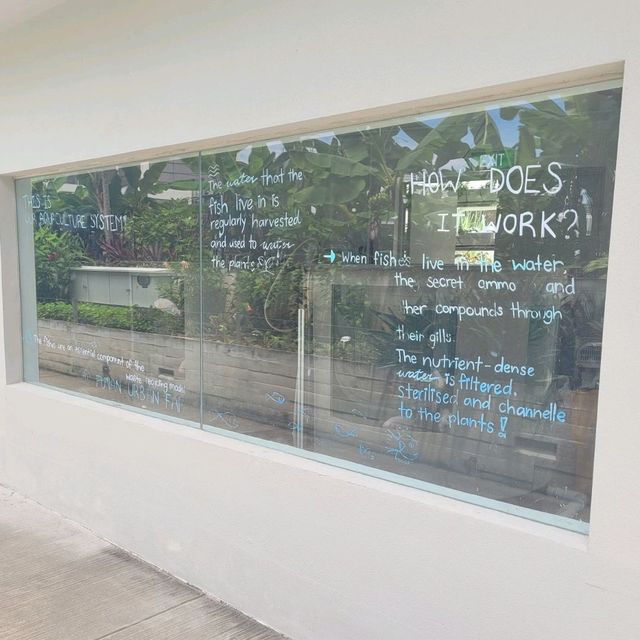 THIS IS
OUR AQUACULTURE SYSTEM!
The fishes are an essential component of the
waste recycling model
The water that the
fish live in is
regularly harvested
and used to water
the plants!
EXIT
HOW DOES
IT WORK?
→ When fishes live in the water,
the secret ammo and
ther compounds through
their gills.
The nutrient-dense
water is filtered,
sterilised and channelle
to the plants!